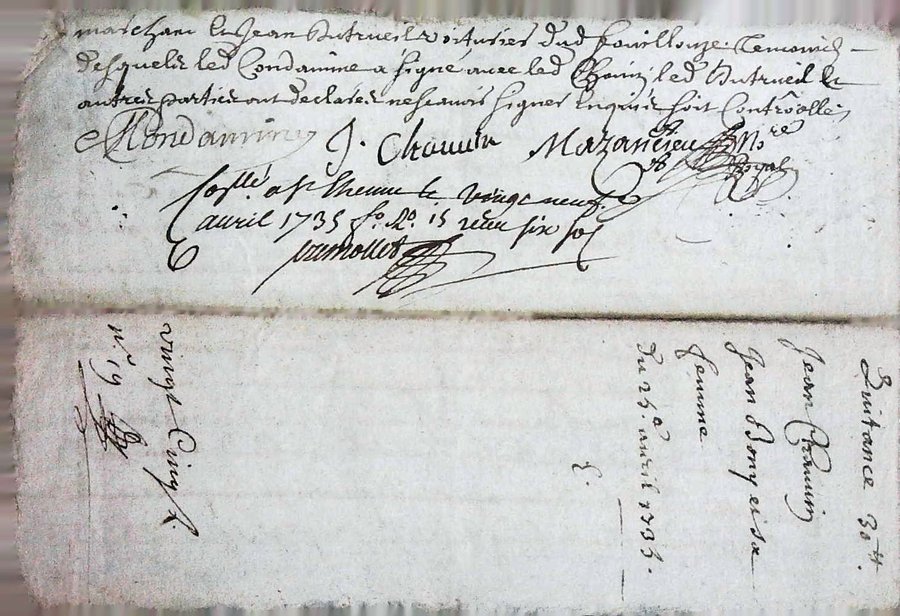 marchant et Jean Dutrueil voiturier dud bouillouze temoins
desquels led Condamine a signé avec led Chouin led Dutrueil &
autres parties ont déclaré ne scavoir signer enquis soit Controollé
Condamine J. Chouin Mazancieu Nre
Royal
Collé a St le vingt neuf
avril 1735 fo. Ro. 15 receu six sol
Quitance 30tt.
Jean Chouin
Jean Bony et sa
femme
du 25e avril 1735.
vingt Cinq s.
No 19